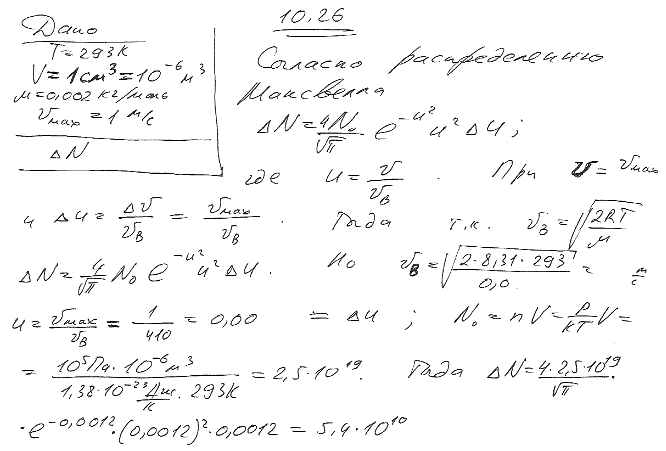 10.26
Дано
T = 293K
V = 1 см³ = 10⁻⁶ м³
м = 0,002 кг/моль
v_max = 1 м/с
ΔN
Согласно распределению
Максвелла
ΔN = 4N₀/√π e^(-u²) u² Δu ;
где u = v/v_B . При v = v_max
и Δu = Δv/v_B = v_max/v_B . Тогда т.к. v_B = √(2RT/м)
ΔN = 4/√π N₀ e^(-u²) u² Δu . Но v_B = √(2·8,31·293/0,0) = м/с
u = v_max/v_B = 1/410 = 0,00 = Δu ; N₀ = nV = p/kT V =
= 10⁵Па·10⁻⁶м³/1,38·10⁻²³Дж/К·293К = 2,5·10¹⁹. Тогда ΔN = 4·2,5·10¹⁹/√π ·
·e^(-0,0012)·(0,0012)²·0,0012 = 5,4·10¹⁰